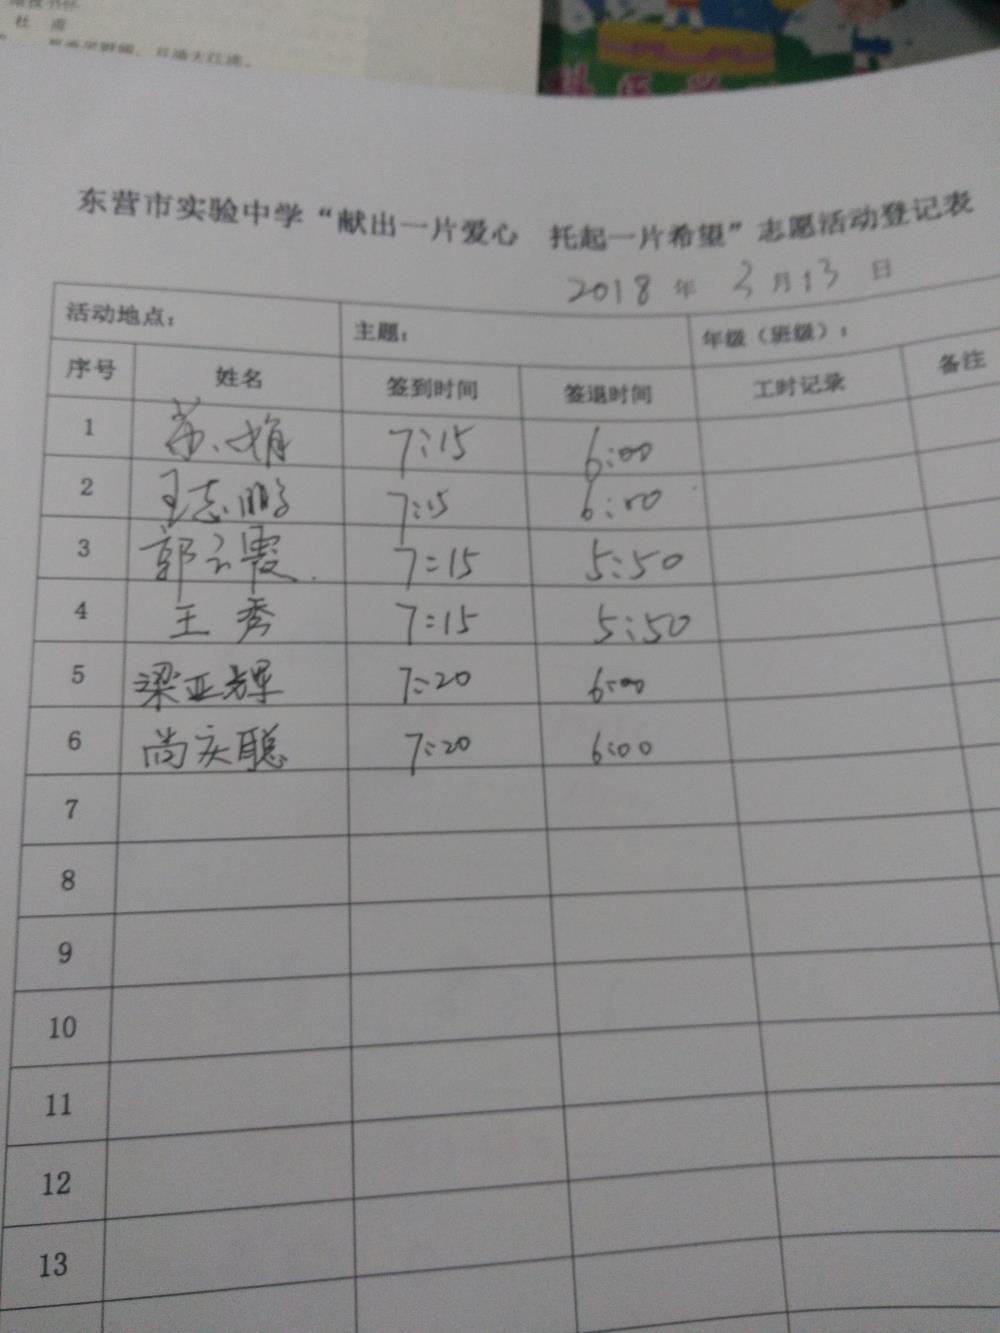 杜 甫
东营市实验中学“献出一片爱心 托起一片希望”志愿活动登记表
2018 年 3 月 13 日
活动地点： 主题： 年级（班级）：
序号 姓名 签到时间 签退时间 工时记录 备注
1 苏娟 7:15 6:00
2 王志鹏 7:15 6:00
3 郭云霞 7:15 5:50
4 王秀 7:15 5:50
5 梁亚辉 7:20 6:00
6 尚庆聪 7:20 6:00
7
8
9
10
11
12
13